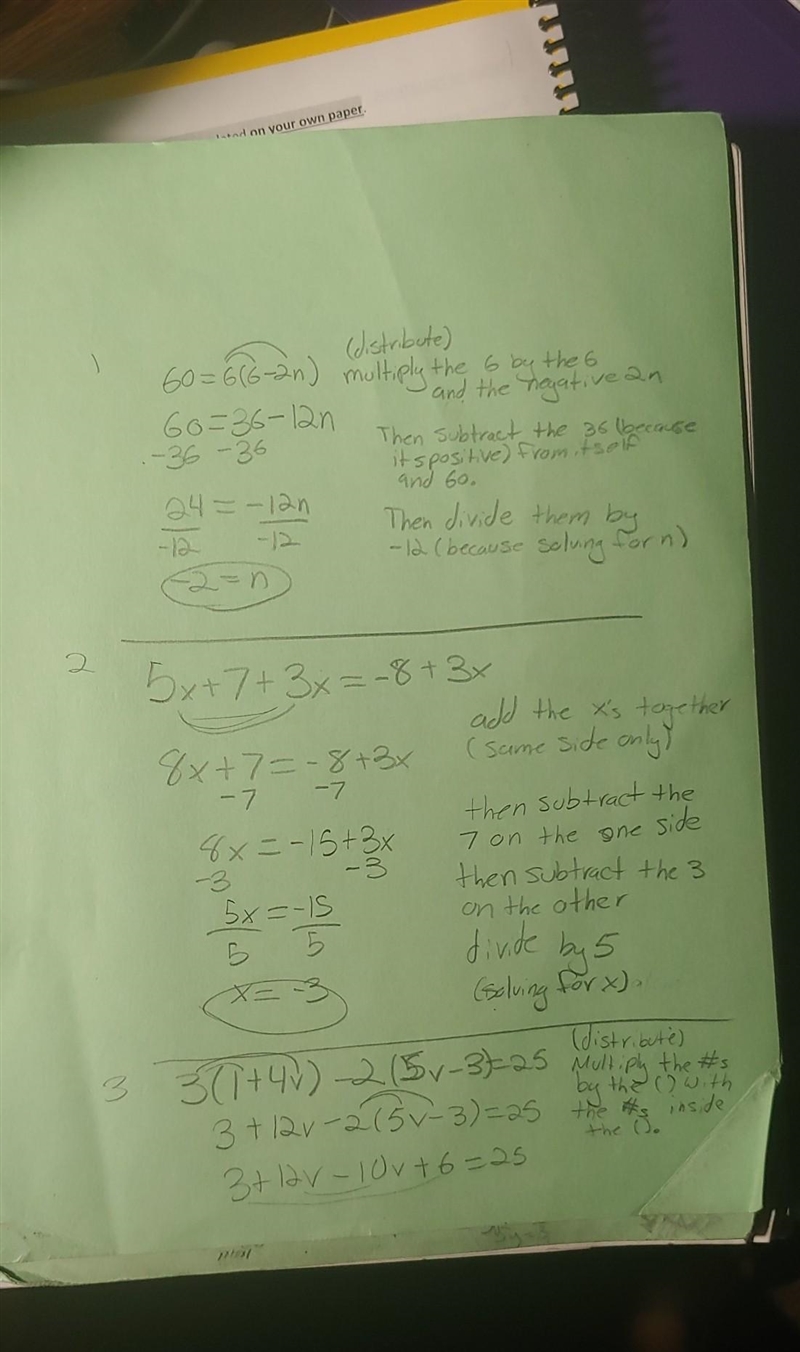 on your own paper.
1
60=6(6-2n) (distribute)
multiply the 6 by the 6
and the negative 2n
60=36-12n
-36 -36
Then subtract the 36 (because
its positive) from itself
and 60.
24 = -12n
-12 -12
Then divide them by
-12 (because solving for n)
-2=n
2
5x+7+3x=-8+3x
add the x's together
(same side only)
8x+7=-8+3x
-7 -7
then subtract the
7 on the one side
8x=-15+3x
-3 -3
then subtract the 3
on the other
5x=-15
5 5
divide by 5
(solving for x).
x=-3
3
3(1+4v)-2(5v-3)=25
(distribute)
Multiply the #s
by the () with
the #s inside
the ().
3+12v-2(5v-3)=25
3+12v-10v+6=25